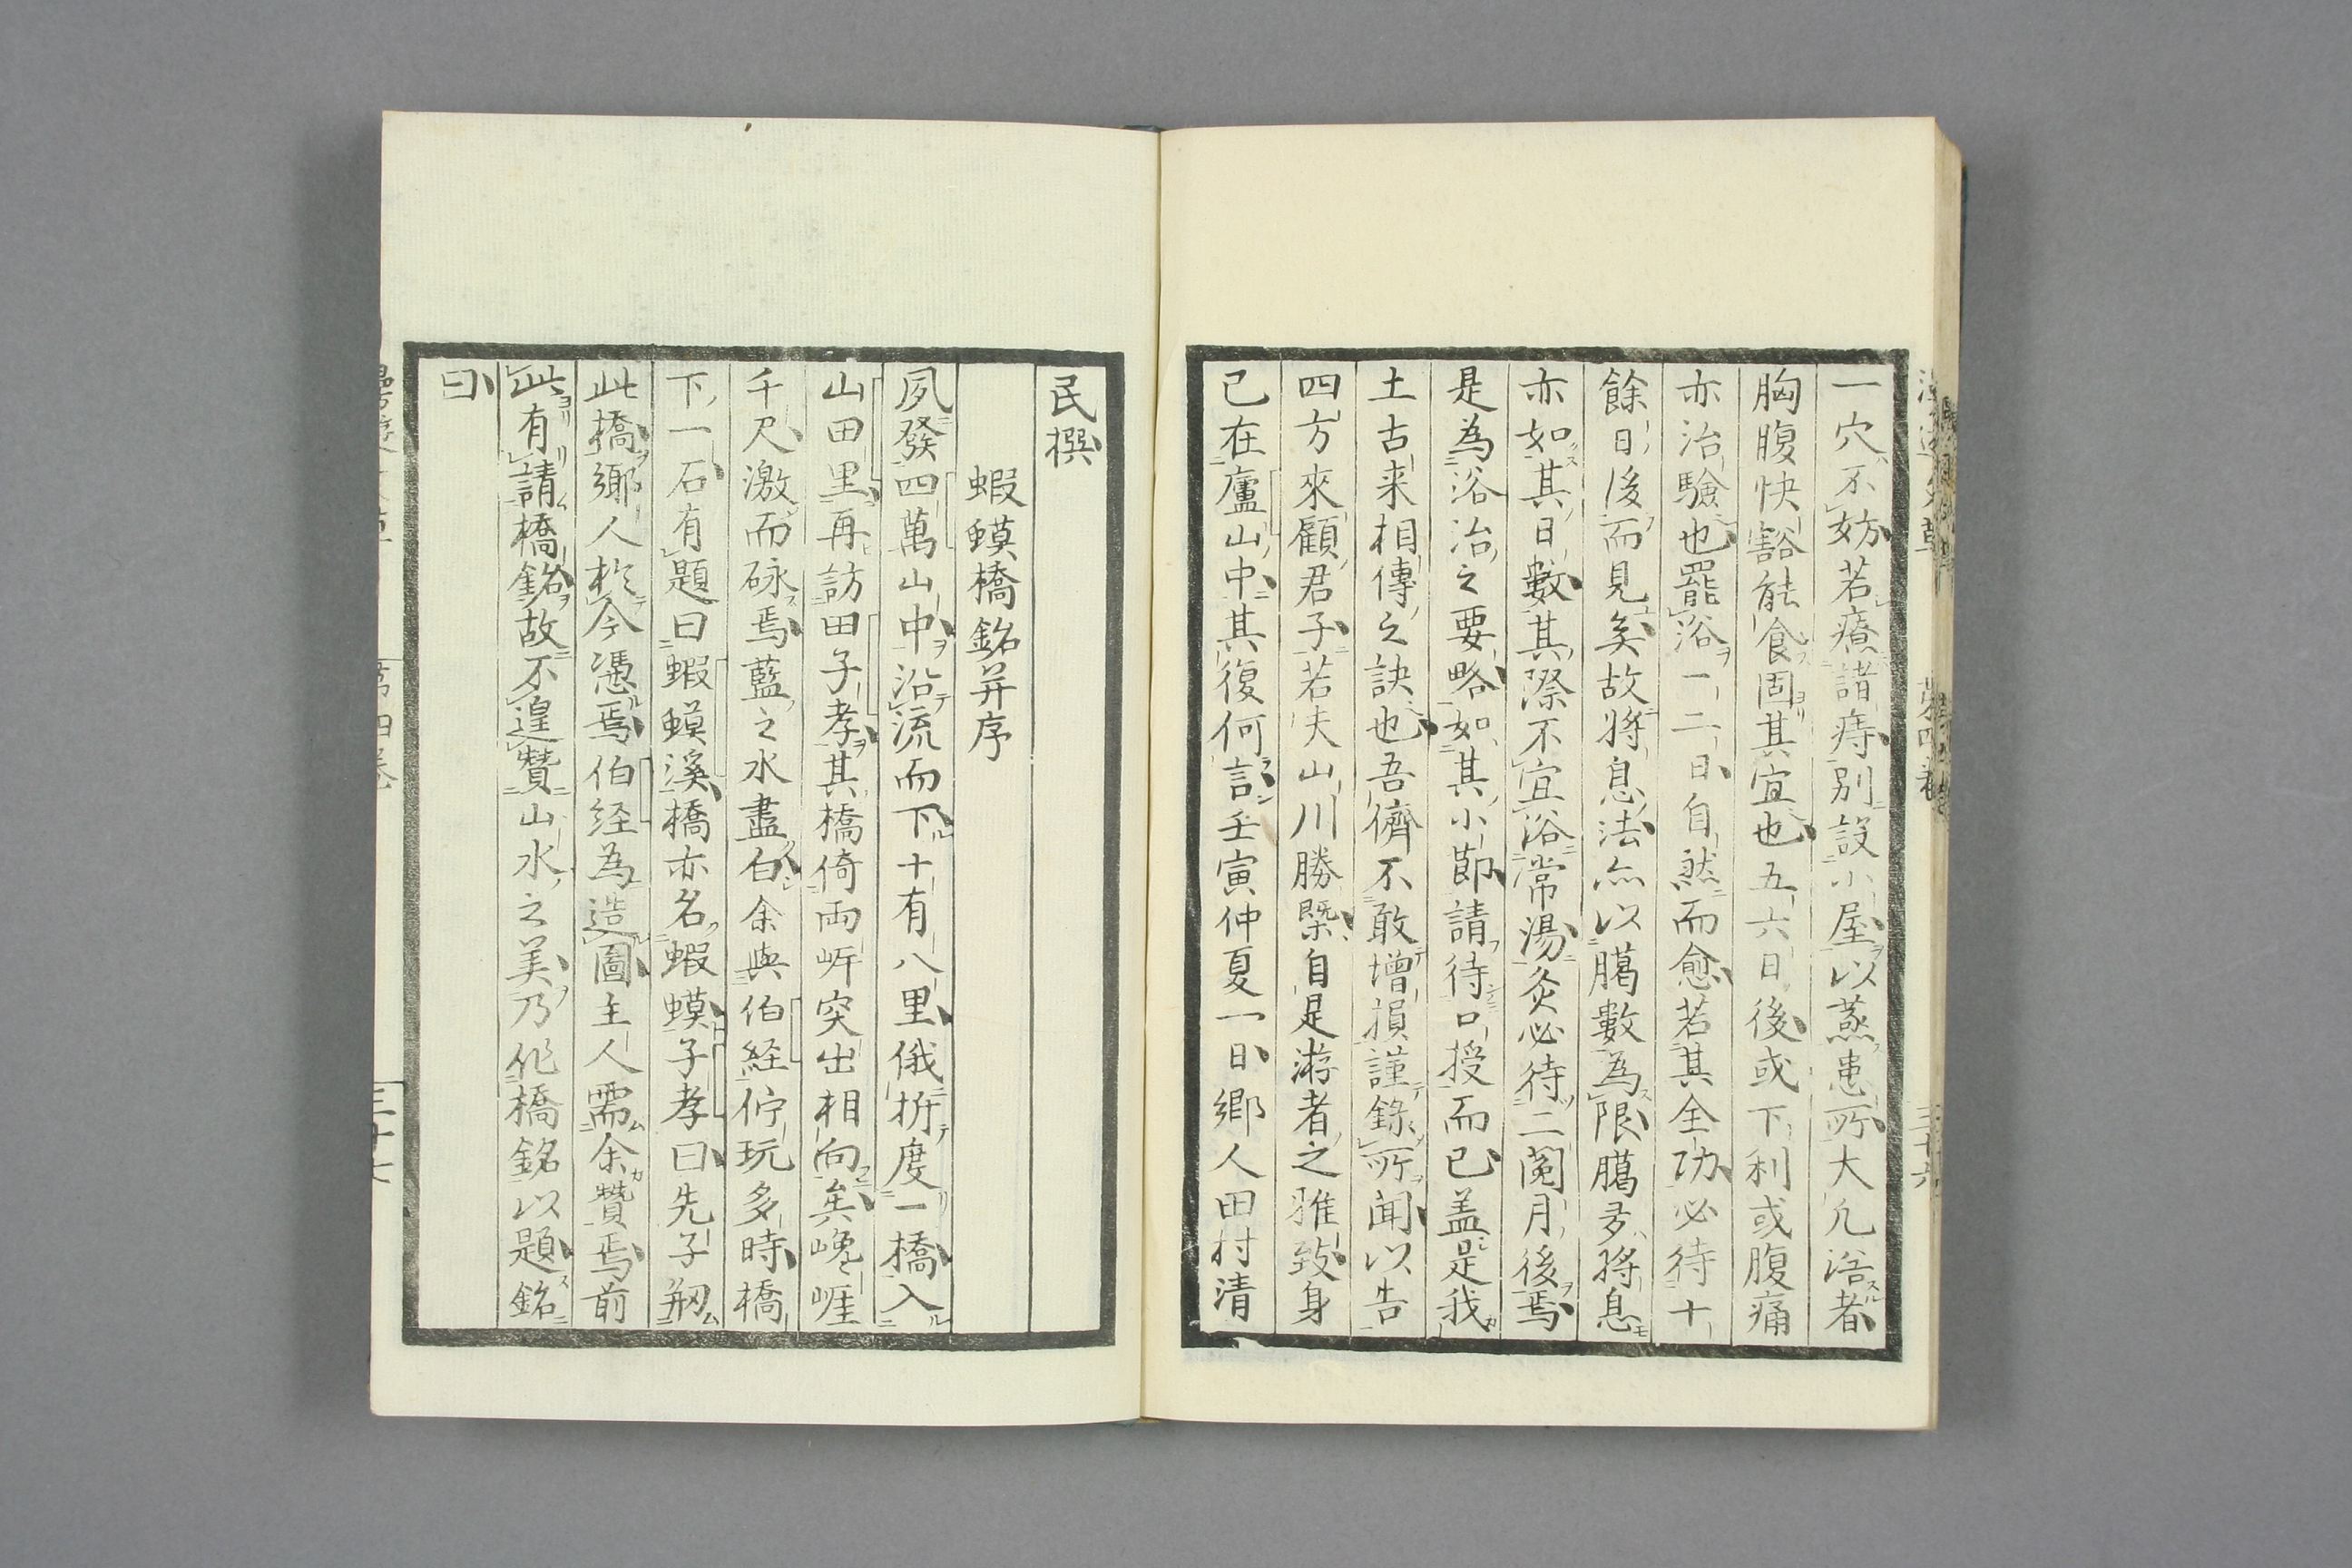 一穴不妨若療諸痔別設小屋以蒸患所大凡浴者
胸腹快豁能食固其宜也五六日後或下利或腹痛
亦治驗也罷浴一二日自然而愈若其全功必待十
餘日後而見矣故將息法亦以臈數為限臈多將息
亦如其日數其際不宜浴常湯灸必待二閲月後焉
是為浴治之要略如其小節請待口授而已蓋是我
土古来相傳之訣也吾儕不敢增損謹錄所聞以告
四方來顧君子若夫山川勝槩自是游者之雅致身
已在廬山中其復何言壬寅仲夏一日鄉人田村清
民撰
蝦蟆橋銘并序
夙發四萬山中沿流而下十有八里俄折度一橋入
山田里再訪田子孝其橋倚兩岸突出相向矣巉崖
千尺激而砅焉藍之水盡白余與伯経佇玩多時橋
下一石有題曰蝦蟆溪橋亦名蝦蟆子孝曰先子剏
此橋鄉人於今憑焉伯経為造圖主人需余贊焉前
此有請橋銘故不遑贊山水之美乃作橋銘以題銘
曰